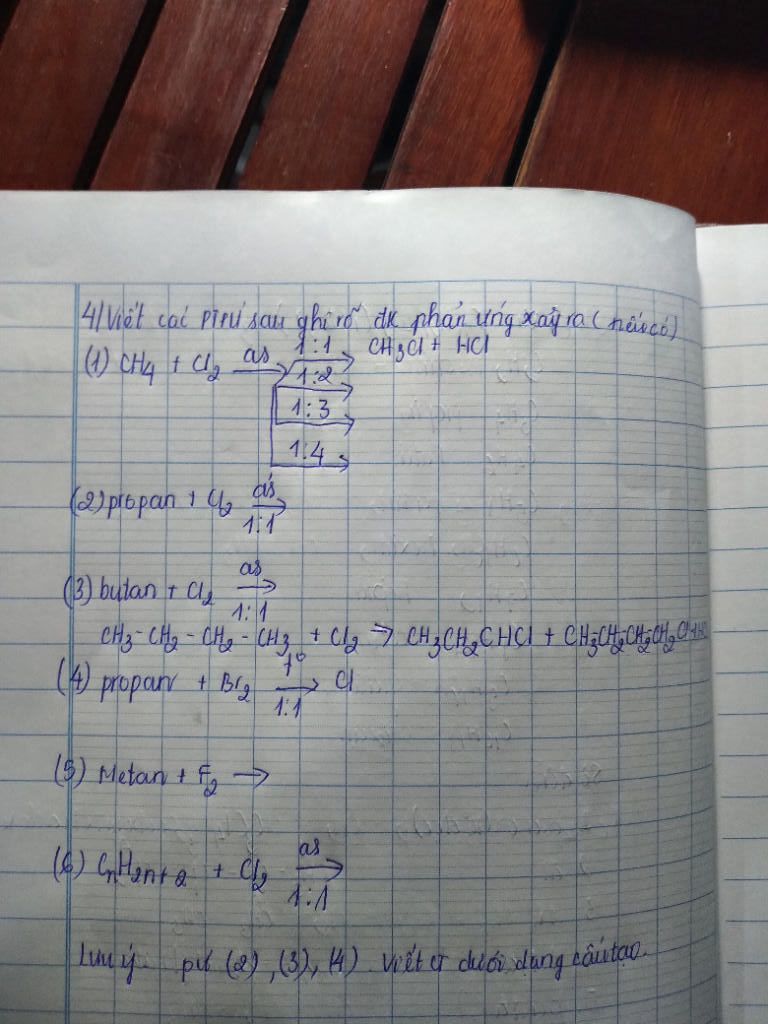 4/ Viết các PTPƯ sau ghi rõ đk phản ứng xảy ra (nếu có)
(1) CH4 + Cl2 as 1:1 CH3Cl + HCl
1:2
1:3
1:4
(2) propan + Cl2 as 1:1
(3) butan + Cl2 as 1:1
CH3-CH2-CH2-CH3 + Cl2 → CH3CH2CHCl + CH3CH2CH2CH2Cl+HCl
(4) propan + Br2 t° 1:1 Cl
(5) Metan + F2 →
(6) CnH2n+2 + Cl2 as 1:1
Lưu ý pư (2), (3), (4) viết ct dưới dạng cấu tạo.